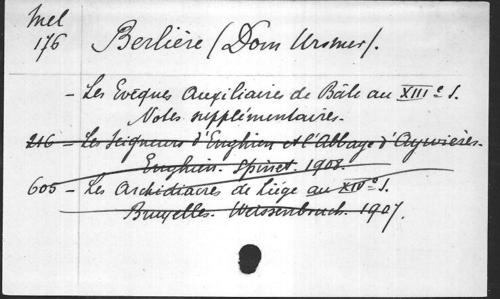 Mel
176
Berlière (Dom Ursmer).
- Les Evêques Auxiliaires de Bâle au XIIIe s.
Notes supplémentaires.
216 - Les Seigneurs d'Enghien et l'Abbaye d'Aywières.
Enghien. Spinet. 1908.
605 - Les Archidiacres de Liége au XIVe s.
Bruxelles. Weissenbruch. 1907.